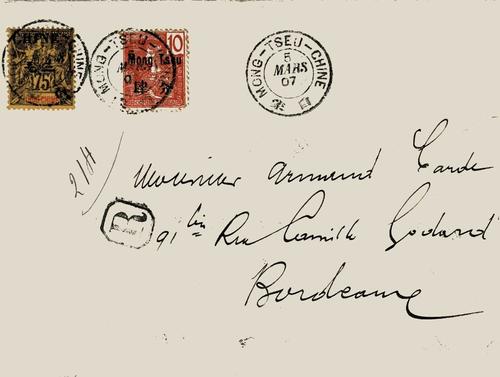 CHINE
75
MONG-TSEU-CHINE
10
Mong Tseu
MONG-TSEU-CHINE
5
MARS
07
214
R
Monsieur Armand Carde
91 bis Rue Camille Godard
Bordeaux